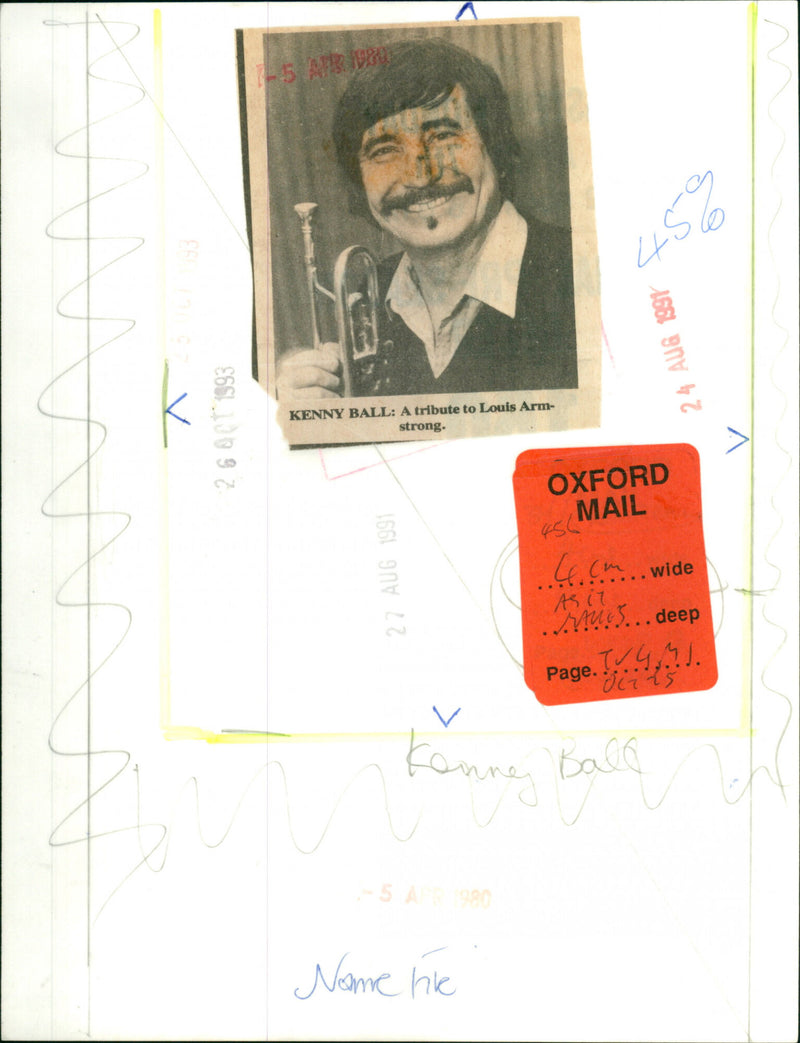 -5 APR 1980
KENNY BALL: A tribute to Louis Arm-
strong.
459
24 AUG 1991
26 OCT 1993
27 AUG 1991
OXFORD
MAIL
456
4 cm wide
AS IT
MAKES deep
Page.
OCT 25
Kenny Ball
-5 APR 1980
Name File